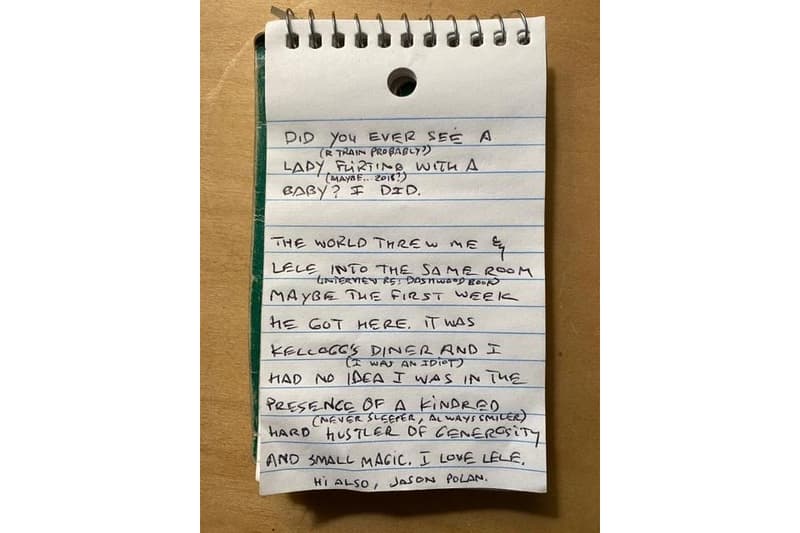 DID YOU EVER SEE A
(R TRAIN PROBABLY?)
LADY FLIRTING WITH A
(MAYBE... 2018?)
BABY? I DID.
THE WORLD THREW ME &
LELE INTO THE SAME ROOM
(INTERVIEW RE: DASHWOOD BOOK)
MAYBE THE FIRST WEEK
HE GOT HERE. IT WAS
KELLOGG'S DINER AND I
(I WAS AN IDIOT)
HAD NO IDEA I WAS IN THE
PRESENCE OF A KINDRED
(NEVER SLEEPER, ALWAYS SMILER)
HARD HUSTLER OF GENEROSITY
AND SMALL MAGIC. I LOVE LELE.
HI ALSO, JASON POLAN.